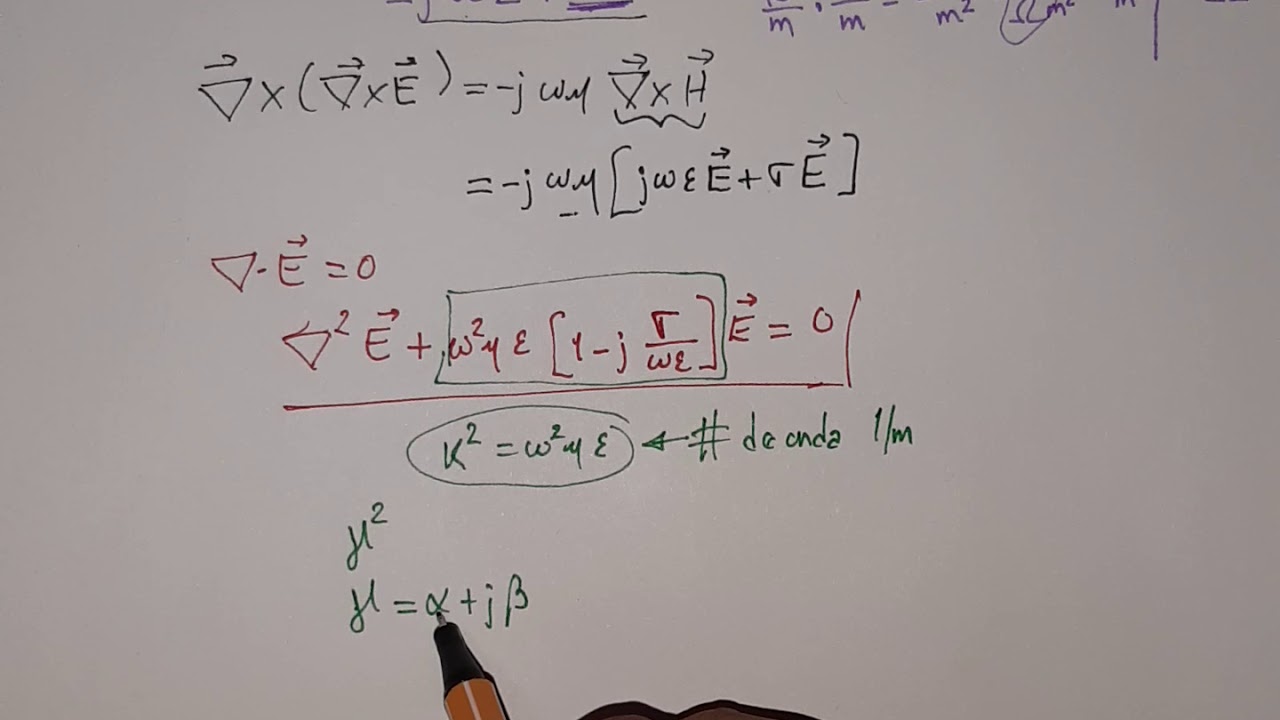 ∇⃗×(∇⃗×E⃗) = -jωμ ∇⃗×H⃗
= -jωμ [jωεE⃗ + σE⃗]
∇·E⃗ = 0
∇² E⃗ + ω²με [1 - j σ/ωε] E⃗ = 0
K² = ω²με ← # de onda 1/m
γ²
γ = α + jβ